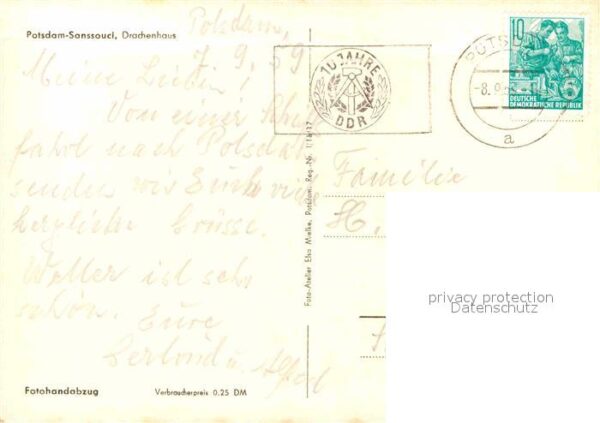 Potsdam-Sanssouci, Drachenhaus
Potsdam,
7.9.59
Meine Lieben
Von einer
fahrt nach Potsdam
senden wir Euch
herzliche Grüsse.
Wetter ist sehr
schön. Eure
u.
Fotohandabzug
Verbraucherpreis 0.25 DM
Foto-Atelier Elsa Mielke, Potsdam. Reg.-Nr.
10 JAHRE
DDR
POTSDAM
a
10
DEUTSCHE
DEMOKRATISCHE REPUBLIK
Familie
H.
privacy protection
Datenschutz